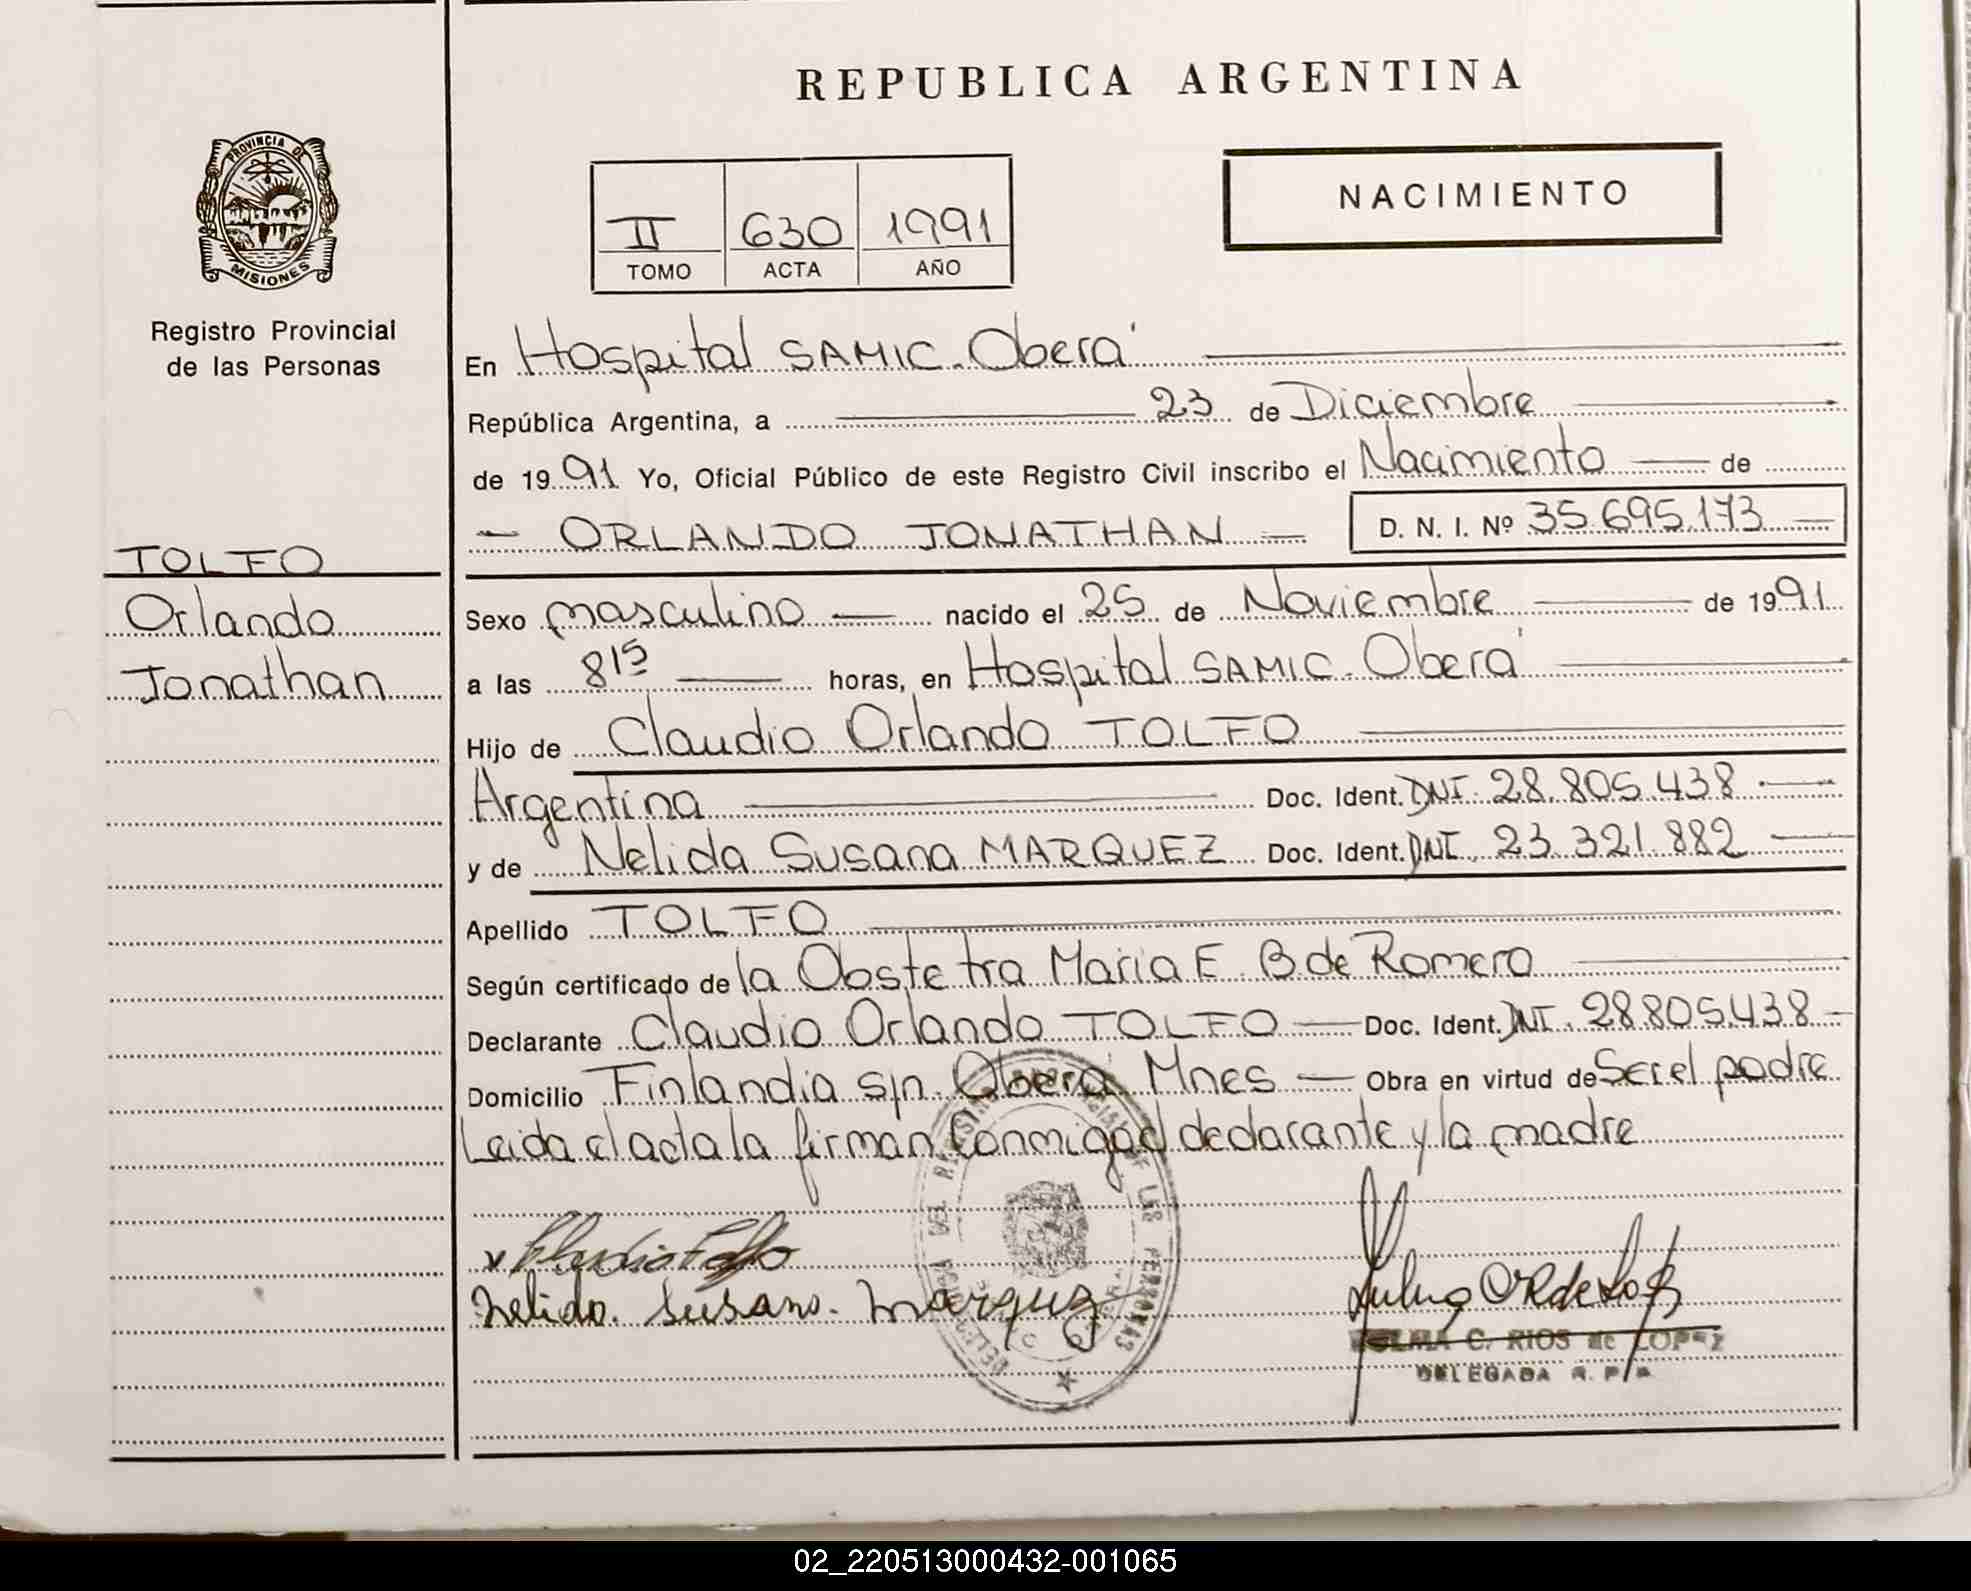 REPUBLICA ARGENTINA
PROVINCIA DE
MISIONES
Registro Provincial
de las Personas
NACIMIENTO
II 630 1991
TOMO ACTA AÑO
En Hospital SAMIC. Oberá
República Argentina, a 23 de Diciembre
de 1991 Yo, Oficial Público de este Registro Civil inscribo el Nacimiento de
ORLANDO JONATHAN D. N. I. Nº 35.695.173
TOLFO
Orlando
Jonathan
Sexo masculino nacido el 25 de Noviembre de 1991
a las 815 horas, en Hospital SAMIC. Oberá
Hijo de Claudio Orlando TOLFO
Argentina Doc. Ident. DNI. 28.805.438
y de Nelida Susana MARQUEZ Doc. Ident. DNI. 23.321.882
Apellido TOLFO
Según certificado de la Obstetra Maria E. B de Romero
Declarante Claudio Orlando TOLFO Doc. Ident. DNI. 28.805.438
Domicilio Finlandia s/n. Oberá Mnes Obra en virtud de Ser el padre
Leida el acta la firman Conmigo el declarante y la madre
Claudio Tolfo
Nelida. Susana. Marquez
C. RIOS de LOPEZ
DELEGADA R. P. P.
02_220513000432-001065